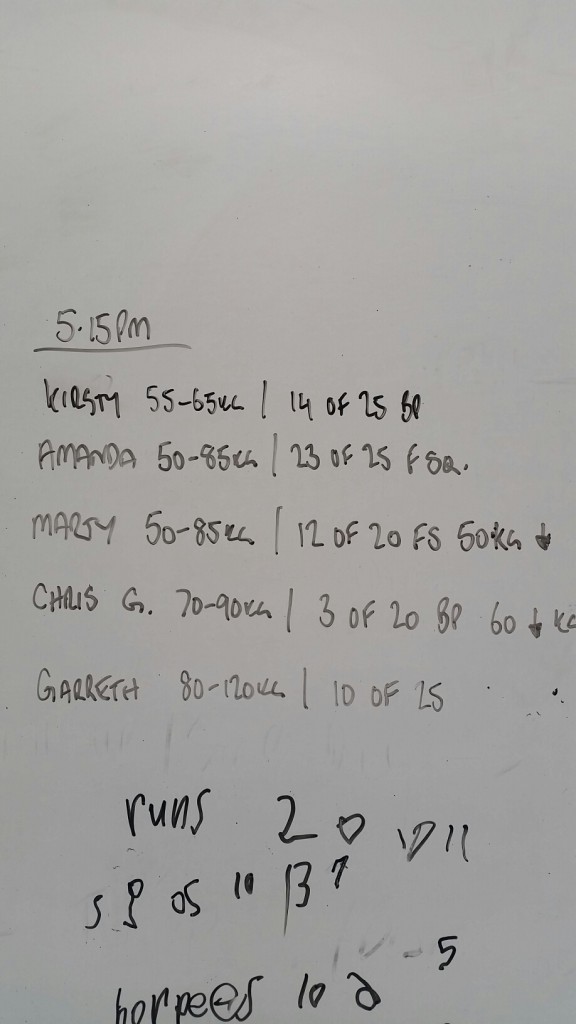 5.15PM
KIRSTY 55-65KG | 14 OF 25 BP
AMANDA 50-85KG | 23 OF 25 F SQ.
MARTY 50-85KG | 12 OF 20 FS 50KG ↓
CHRIS G. 70-90KG | 3 OF 20 BP 60 ↓ KG
GARRETH 80-120KG | 10 OF 25
runs 20
os 10 13 7
5
borpees 10